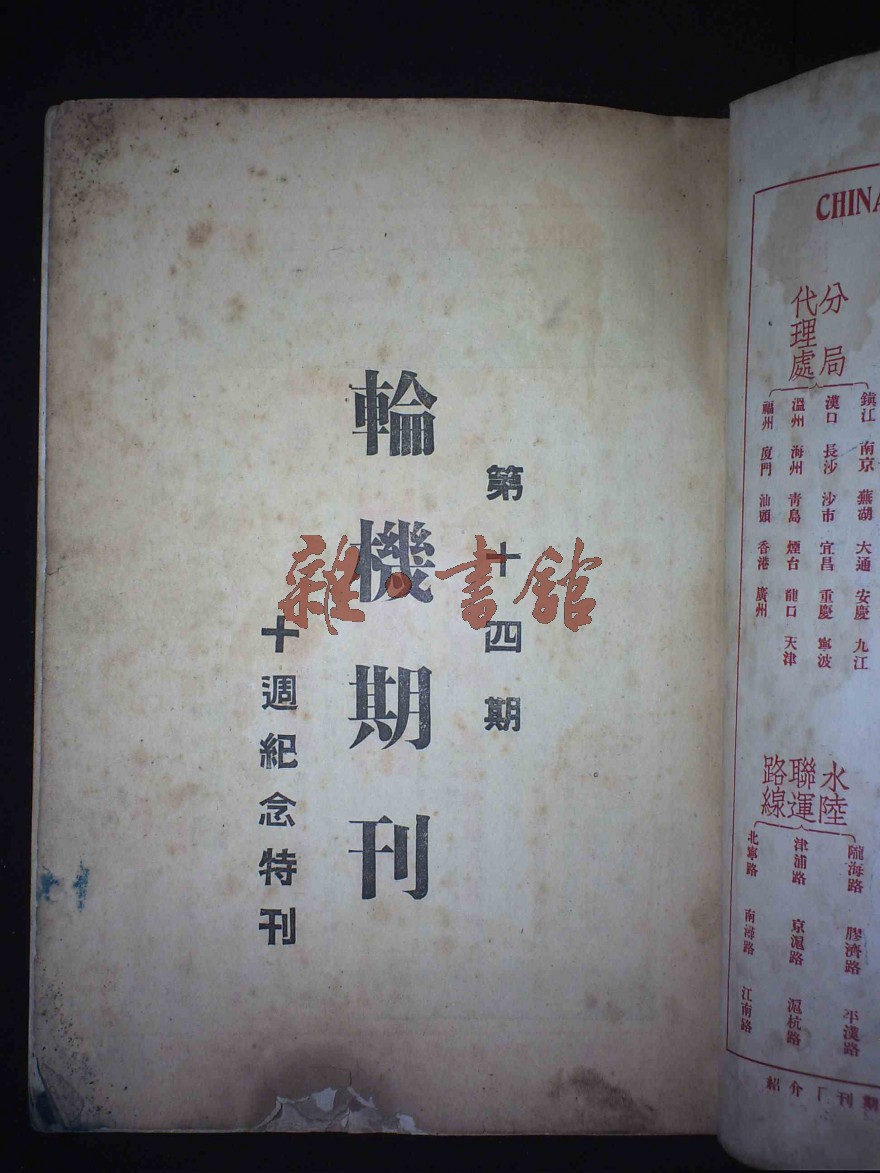 第十四期
輪機期刊
十週紀念特刊
雜·書館
CHINA
分局
代理處
鎮江 南京 蕪湖 大通 安慶 九江
漢口 長沙 沙市 宜昌 重慶 寧波
溫州 海州 青島 煙台 龍口 天津
福州 廈門 汕頭 香港 廣州
水陸
聯運
路線
隴海路 膠濟路 平漢路
津浦路 京滬路 滬杭路
北寧路 南潯路 江南路
紹介「刊期